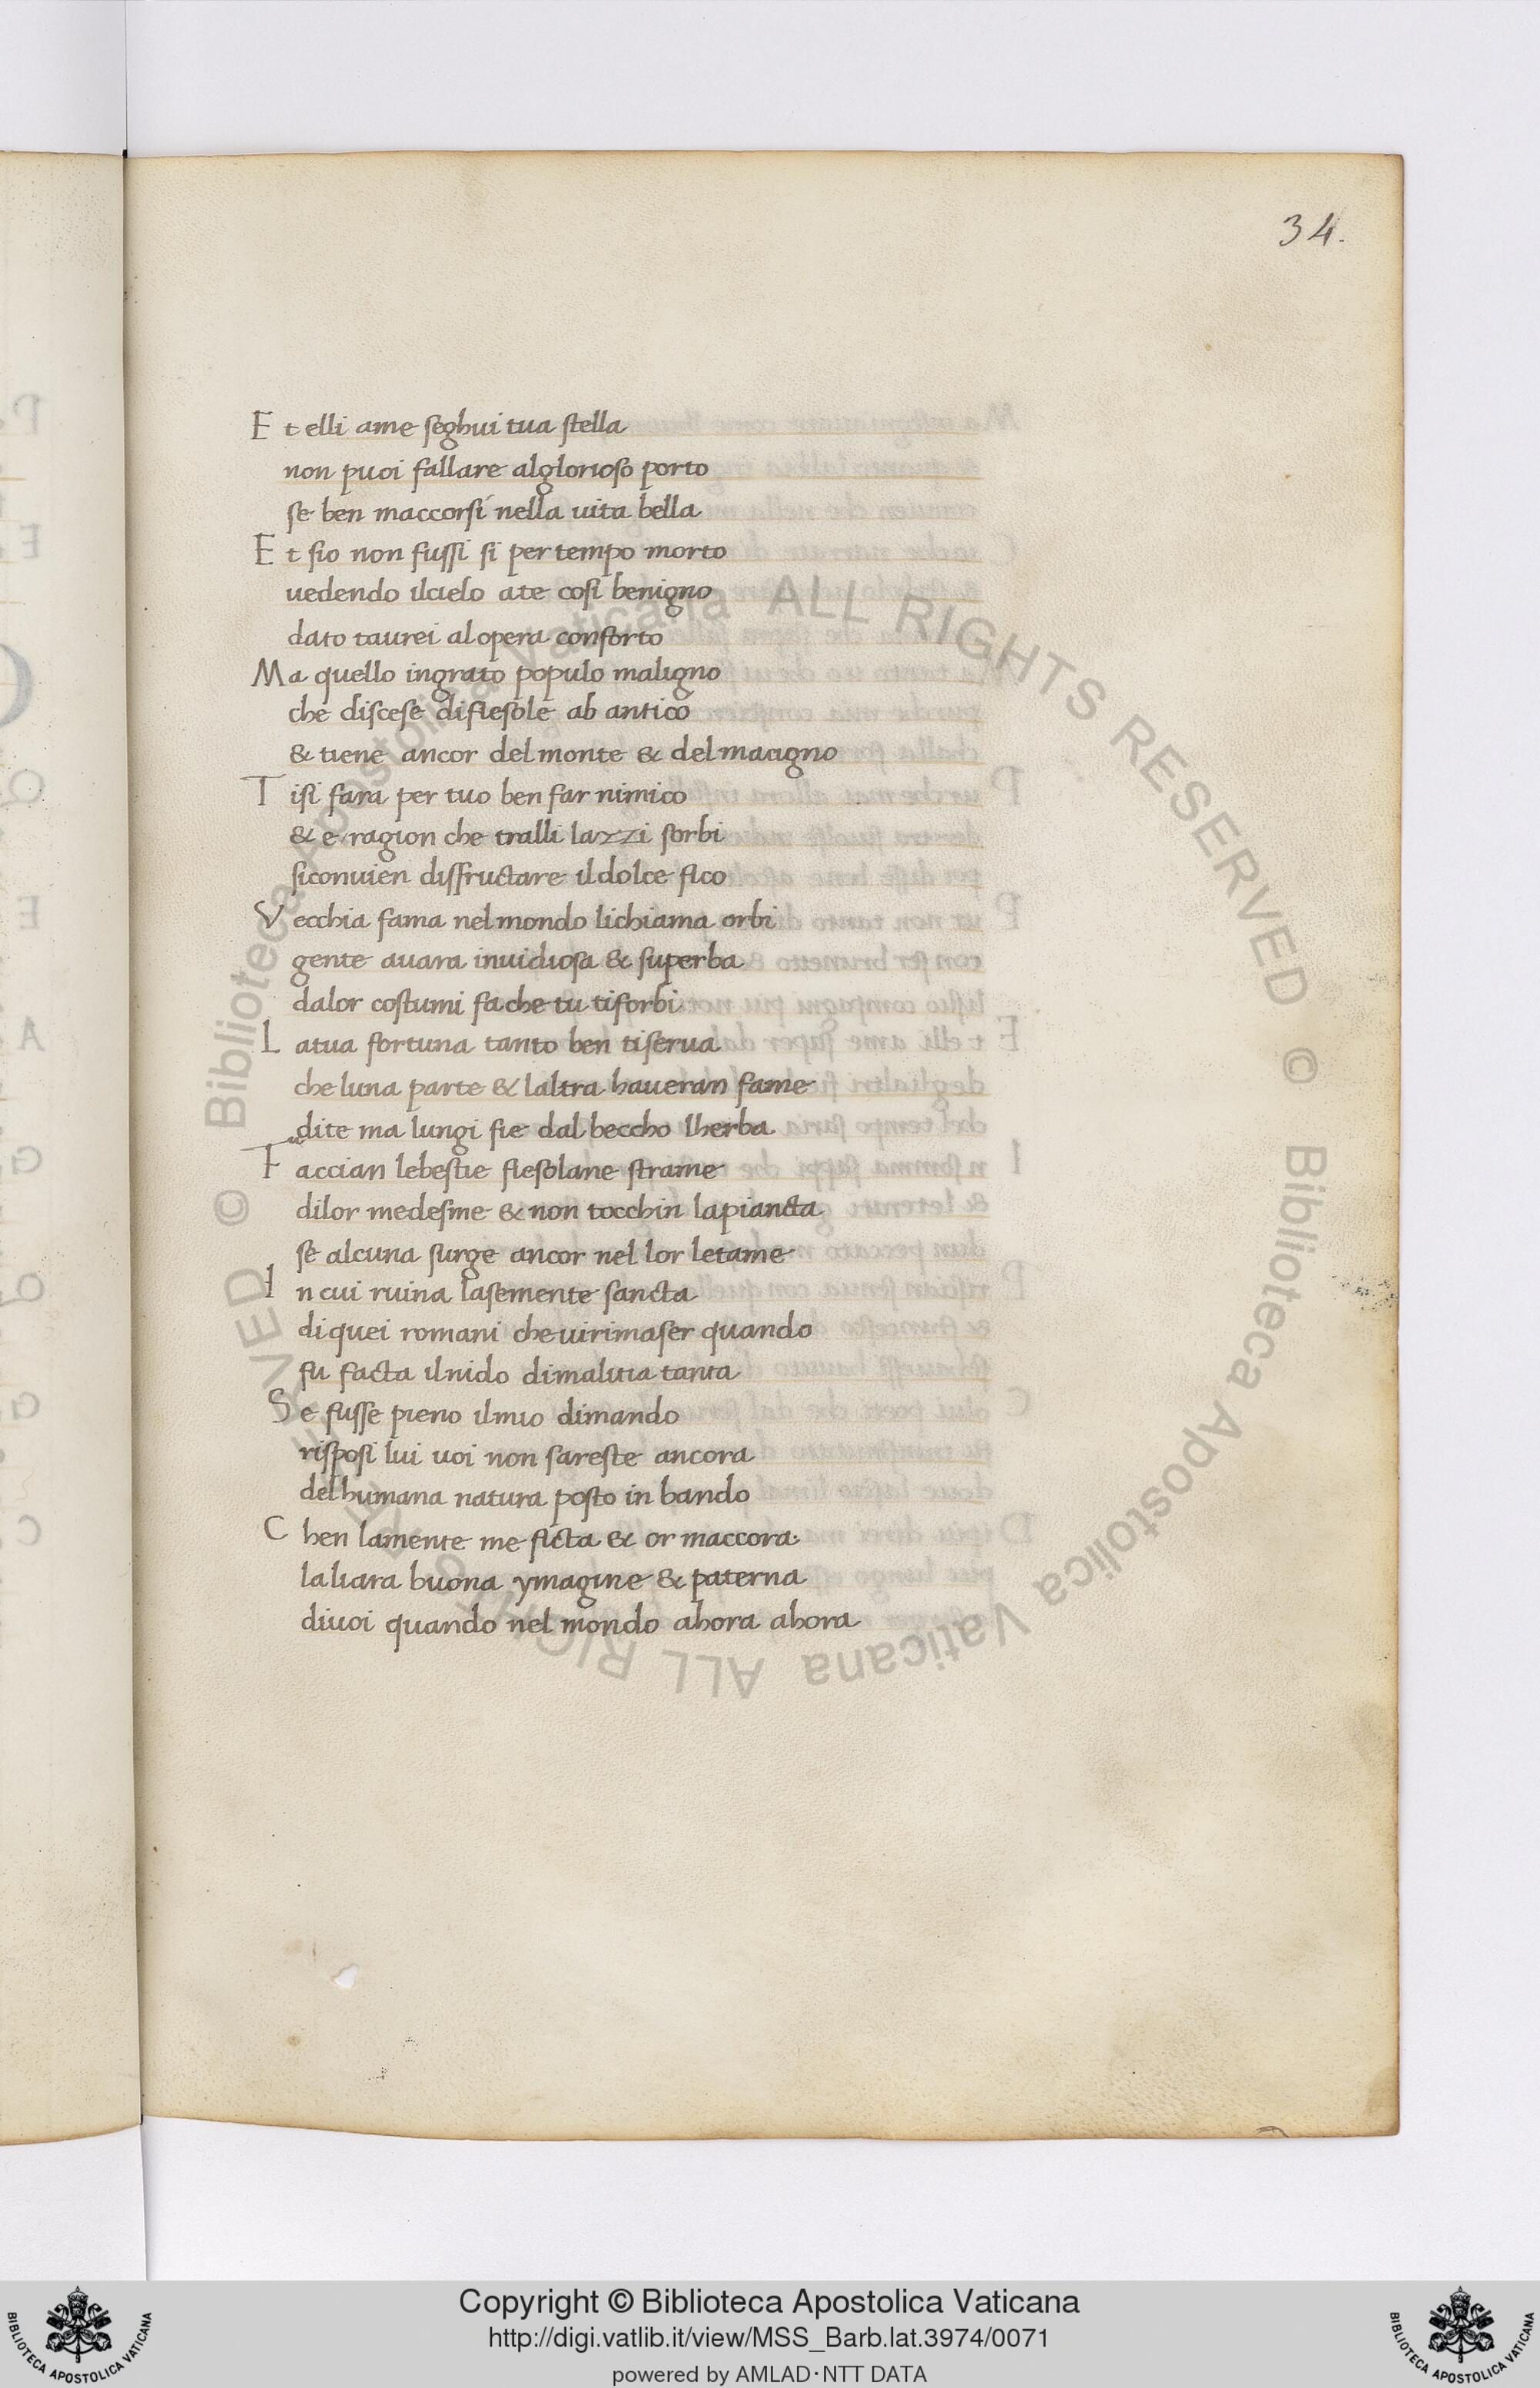 34.
Et elli ame seghui tua stella
non puoi fallare alglorioso porto
se ben maccorsi nella uita bella
Et sio non fussi si per tempo morto
uedendo ilcielo ate cosi benigno
dato taurei alopera conforto
Ma quello ingrato populo maligno
che discese difiesole ab antico
& tiene ancor delmonte & delmacigno
Tisi fara per tuo ben far nimico
& e ragion che tralli lazzi sorbi
siconuien disfructare ildolce fico
Vecchia fama nelmondo lichiama orbi
gente auara inuidiosa & superba
dalor costumi fache tu tiforbi
Latua fortuna tanto ben tiserua
che luna parte & laltra haueran fame
dite ma lungi fie dal beccho lherba
Faccian lebestie fiesolane strame
dilor medesme & non tocchin lapiancta
se alcuna surge ancor nel lor letame
In cui ruina lasemente sancta
diquei romani cheuirimaser quando
fu facta ilnido dimalitia tanta
Se fusse pieno ilmio dimando
risposi lui uoi non sareste ancora
delhumana natura posto in bando
Chen lamente me ficta & or maccora
lahara buona ymagine & paterna
diuoi quando nel mondo ahora ahora
© Biblioteca Apostolica Vaticana ALL RIGHTS RESERVED © Biblioteca Apostolica Vaticana ALL RIGHTS RESERVED
BIBLIOTECA APOSTOLICA VATICANA
Copyright © Biblioteca Apostolica Vaticana
http://digi.vatlib.it/view/MSS_Barb.lat.3974/0071
powered by AMLAD·NTT DATA
BIBLIOTECA APOSTOLICA VATICANA